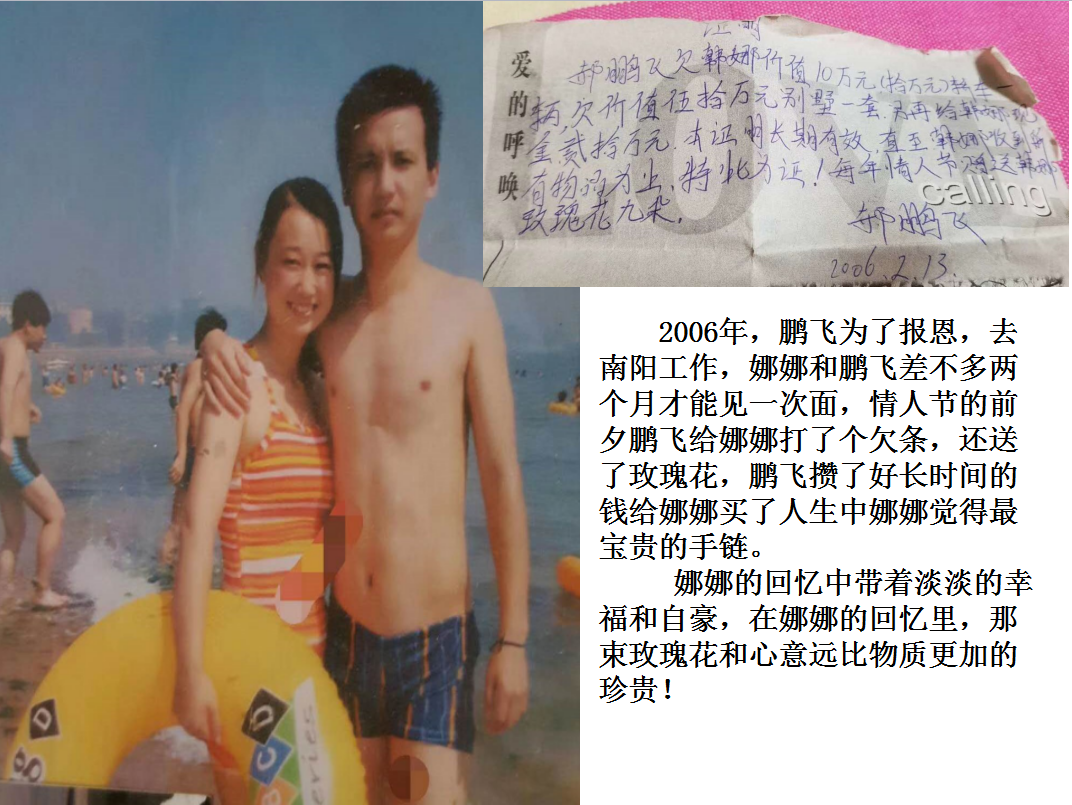 爱的呼唤
证明
郝鹏飞欠韩娜价值10万元(拾万元)轿车一
辆,欠价值伍拾万元别墅一套.另再给韩娜现
金.贰拾万元.本证明长期有效.直至韩娜收到所
有物品为止.特此为证!每年情人节送韩娜
玫瑰花九朵.
郝鹏飞
2006.2.13.
calling
2006年，鹏飞为了报恩，去
南阳工作，娜娜和鹏飞差不多两
个月才能见一次面，情人节的前
夕鹏飞给娜娜打了个欠条，还送
了玫瑰花，鹏飞攒了好长时间的
钱给娜娜买了人生中娜娜觉得最
宝贵的手链。
娜娜的回忆中带着淡淡的幸
福和自豪，在娜娜的回忆里，那
束玫瑰花和心意远比物质更加的
珍贵！
D
g
D
C
B
eries